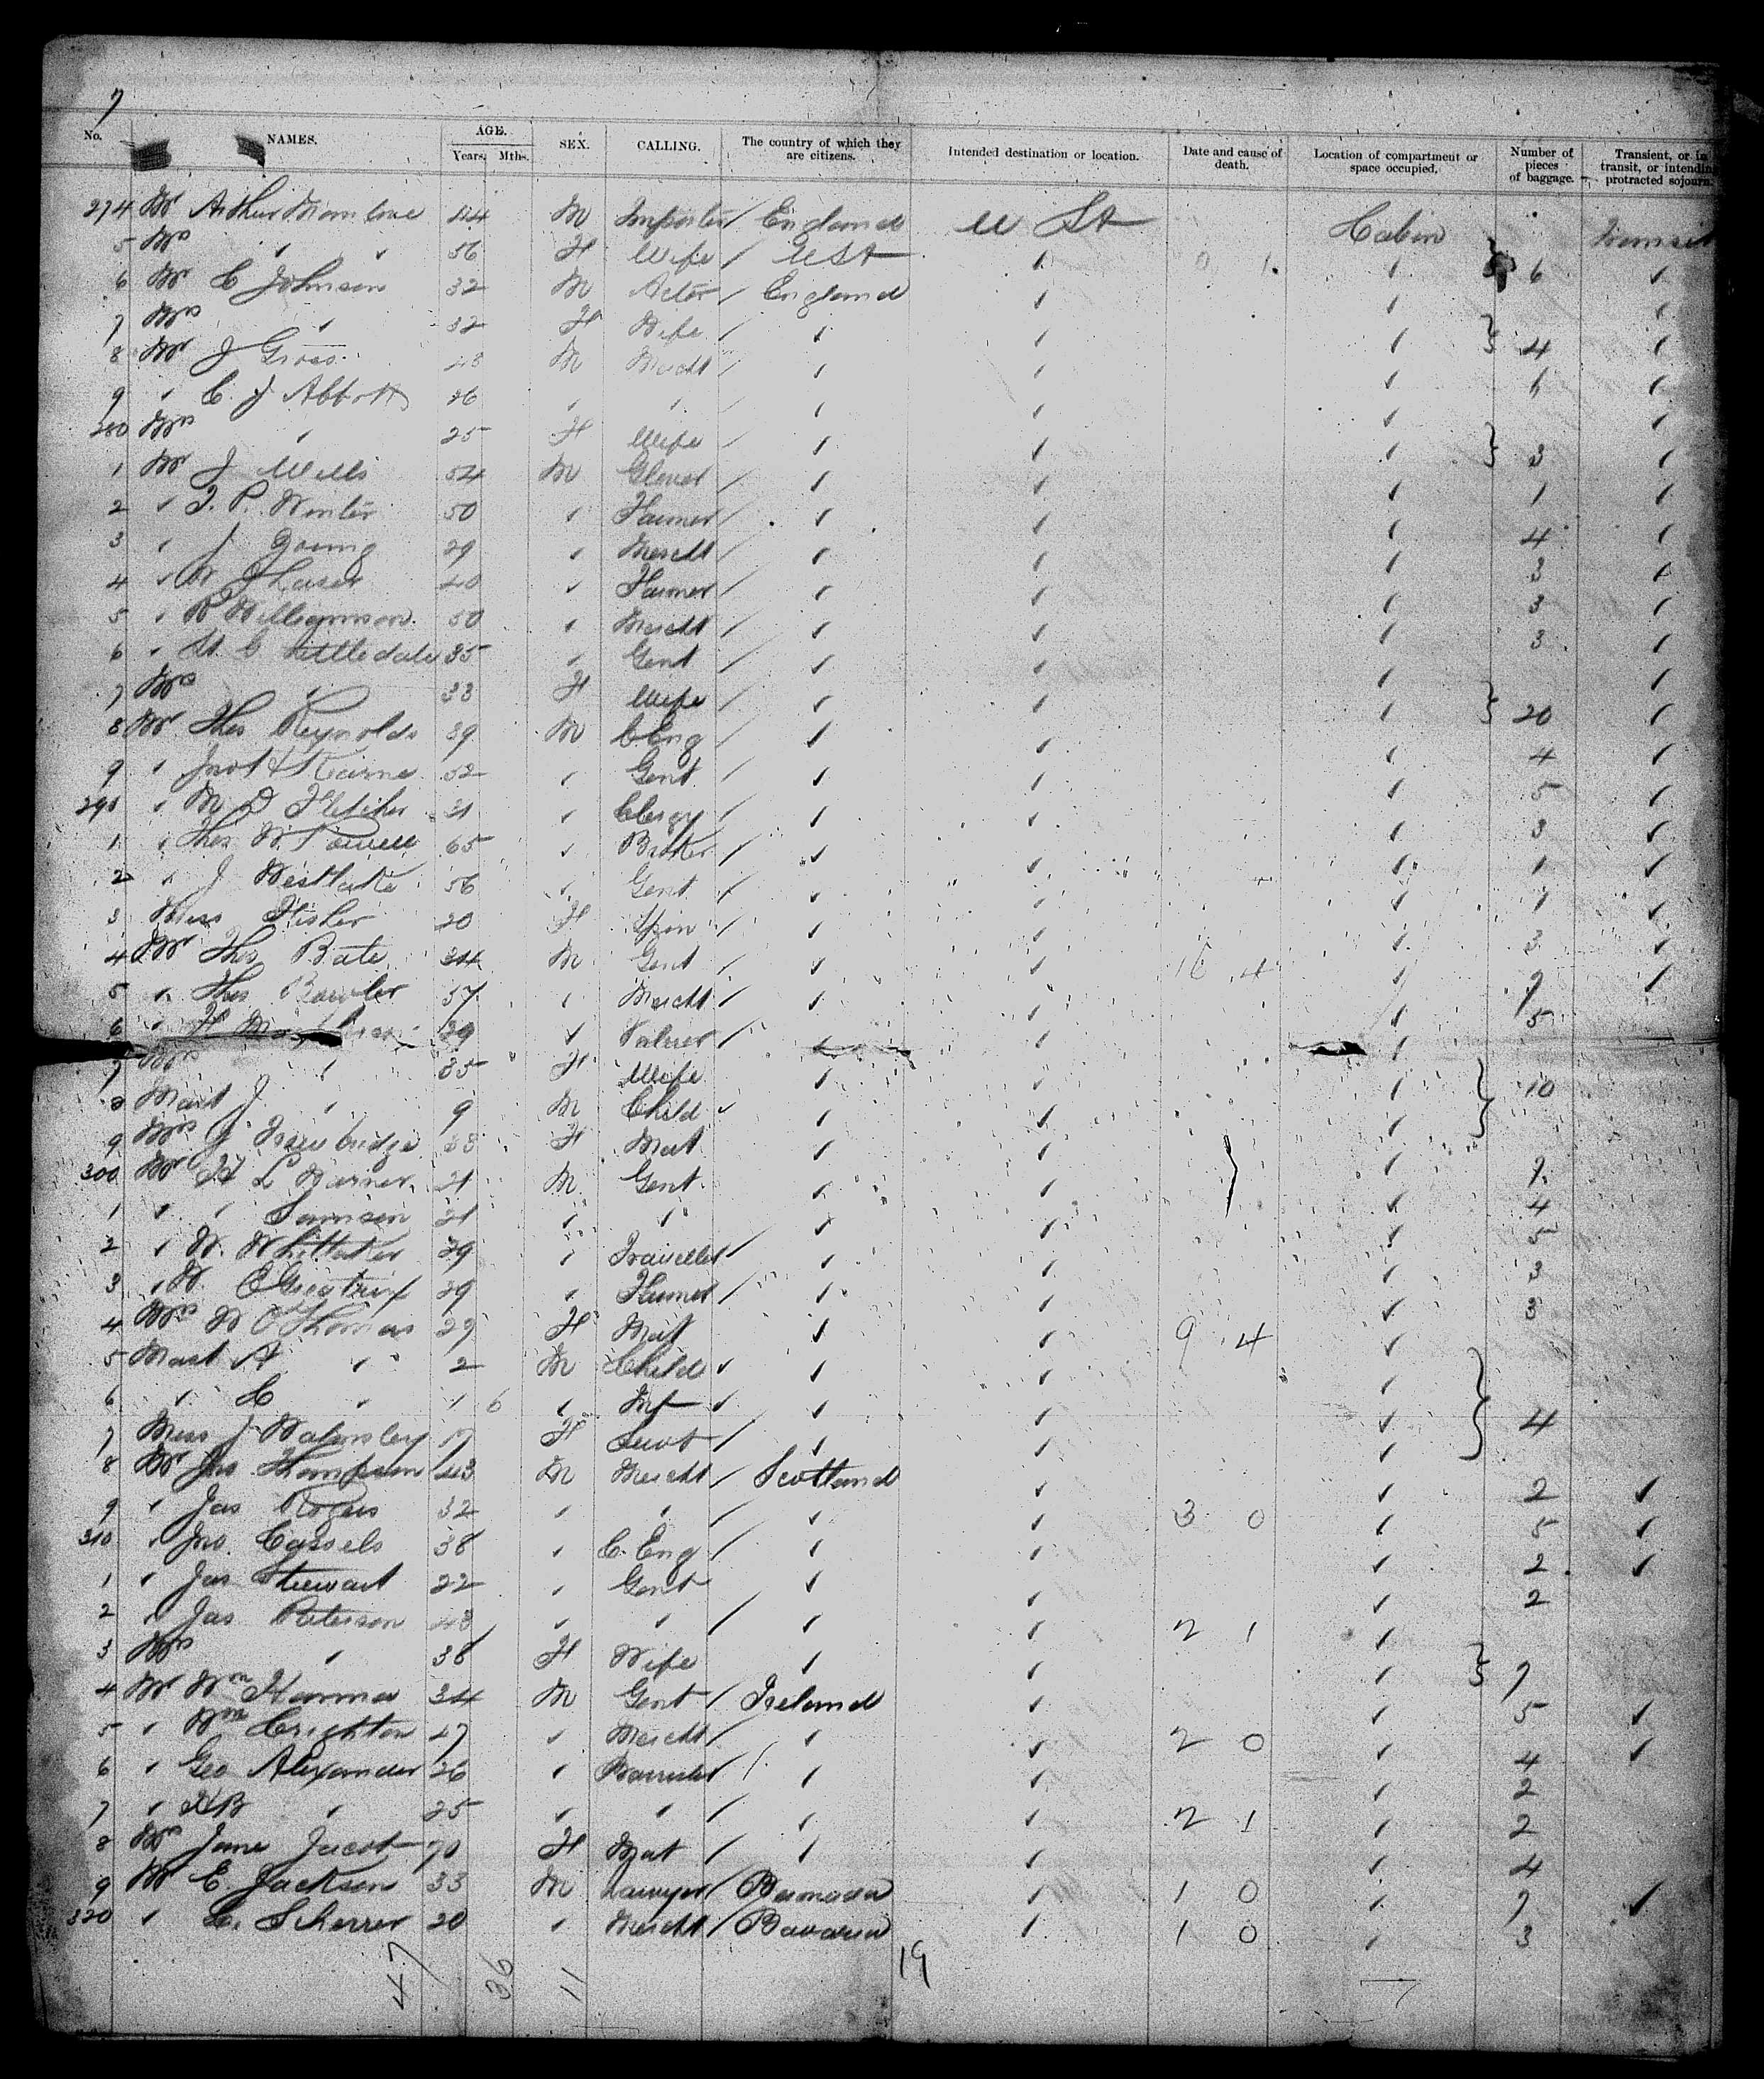 7
No. NAMES. AGE. Years. Mths. SEX. CALLING. The country of which they are citizens. Intended destination or location. Date and cause of death. Location of compartment or space occupied. Number of pieces of baggage. Transient, or in transit, or intending protracted sojourn.
274 Mr Arthur 44 M Importer / England U St Cabin Transit
5 Mrs " " 56 F Wife / USA " 0 1 " 6 "
6 Mr C Johnson 32 M Actor / England " " "
7 Mrs " 32 F Wife / " " " 4 "
8 Mr J Gross 28 M Mercht / " " " "
9 " C. J Abbott 26 " " " " " "
280 Mrs " 25 F Wife / " " " 3 "
1 Mr J Wells 54 M Glover / " " " 1 "
2 " T. P. Winter 50 " Farmer / " " " 4 "
3 " J Young 29 " Mercht / " " " 3 "
4 " W 40 " Farmer / " " " 3 "
5 " R Williamson 50 " Mercht / " " " 3 "
6 " Littledale 35 " Gent / " " " "
7 Mrs " 33 F Wife / " " " 20 "
8 Mr Thos Reynolds 39 M C. Eng / " " " 4 "
9 " 52 " Gent / " " " 5 "
290 " M D Fletcher 31 " Clergy / " " " 3 "
1 " Thos W. Powell 65 " Broker / " " " 1 "
2 " J Westlake 56 " Gent / " " " 1 "
3 Miss Fisher 20 F Spin / " " " 3 "
4 Mr Thos Bate 34 M Gent / " " 16 4 " 7 "
5 " Thos 57 " Mercht / " " " 5
6 " 29 " / " " "
7 Mrs " 35 F Wife " " " 10
8 Mast J " 9 M Child " " " "
9 Mrs J 28 F Mat " " " 7
300 Mr H L Warner 21 M Gent " " " 4
1 " " Samson 21 " " " " " 5
2 " W. Whittaker 29 " Traveller / " " " 3
3 " W. 29 " Farmer / " " " 3
4 Mrs W O Thomas 29 F Mat " " 9 4 "
5 Mast A " 2 M Child " " " "
6 " C " 1 6 " Inf " " " " 4
7 Miss J Walmsley 17 F Servt / " " "
8 Mr Jno Thompson 43 M Mercht / Scotland " " 2 "
9 " Jas Rogers 32 " " / " " 3 0 " 5 "
310 " Jno. Cassels 38 " C. Eng / " " " 2 "
1 " Jas Stewart 22 " Gent " " " 2
2 " Jas Paterson 48 " " / " " 2 1 "
3 Mrs " 38 F Wife " " " 7
4 Mr Wm Hanna 34 M Gent / Ireland " " 5 "
5 " Wm Crighton 47 " Mercht / " " 2 0 " 4 "
6 " Geo Alexander 26 " Barrister / " " " 2
7 " " 25 " " / " " 2 1 " 2
8 Mrs Jane Jacob 70 F Mat / " " " 4
9 Mr E. Jackson 33 M Lawyer / Bermuda " 1 0 " 7 "
320 " L. Scherrer 20 " Mercht / Bavaria " 1 0 " 3
47 36 11 19